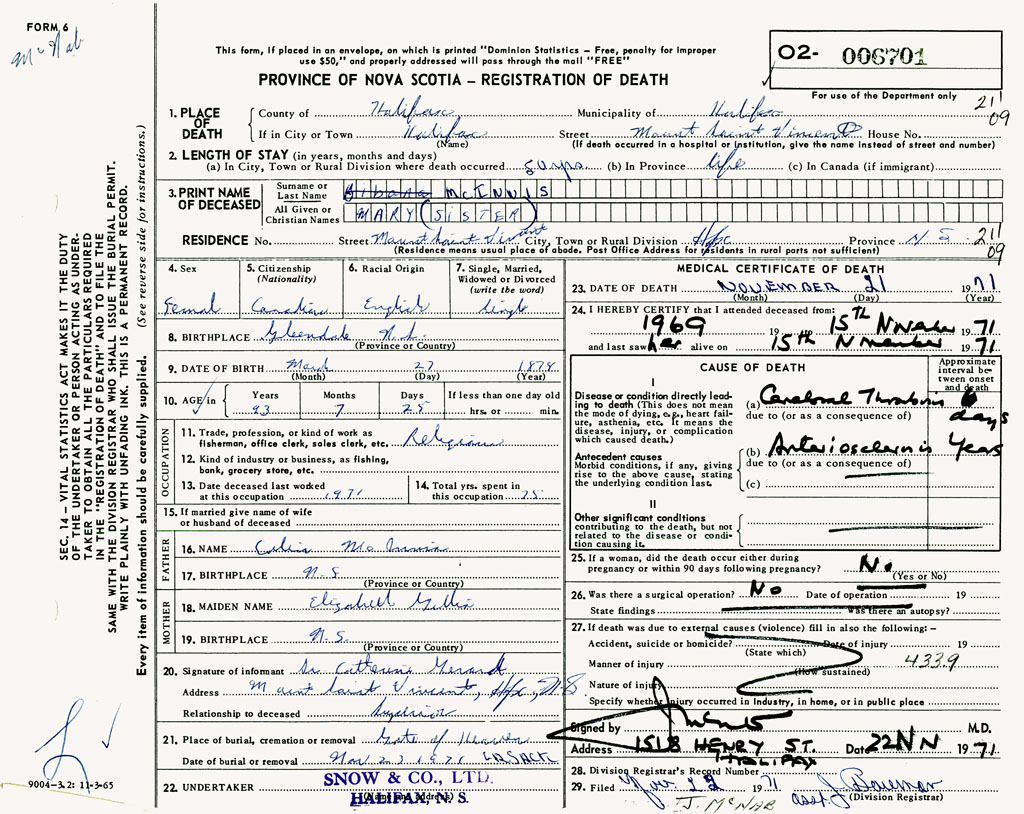 FORM 6
McNab
This form, if placed in an envelope, on which is printed "Dominion Statistics – Free, penalty for improper
use $50," and properly addressed will pass through the mail "FREE"
PROVINCE OF NOVA SCOTIA – REGISTRATION OF DEATH
O2- 006701
For use of the Department only
211
09
1. PLACE OF DEATH
County of Halifax Municipality of Halifax
If in City or Town Halifax Street Mount Saint Vincent House No.
(Name) (If death occurred in a hospital or institution, give the name instead of street and number)
2. LENGTH OF STAY (in years, months and days)
(a) In City, Town or Rural Division where death occurred 50 yrs. (b) In Province life (c) In Canada (if immigrant)
3. PRINT NAME OF DECEASED
Surname or Last Name McINNIS
All Given or Christian Names MARY (SISTER)
RESIDENCE No. Street Mount Saint Vincent City, Town or Rural Division Hfx Province N S
(Residence means usual place of abode. Post Office Address for residents in rural parts not sufficient)
211
09
4. Sex
Femal
5. Citizenship (Nationality)
Canadian
6. Racial Origin
English
7. Single, Married, Widowed or Divorced (write the word)
Singl
8. BIRTHPLACE Glendale N.S.
(Province or Country)
9. DATE OF BIRTH March 27 1878
(Month) (Day) (Year)
10. AGE in Years 93 Months 7 Days 25 If less than one day old hrs. or min.
OCCUPATION
11. Trade, profession, or kind of work as fisherman, office clerk, sales clerk, etc. Religious
12. Kind of industry or business, as fishing, bank, grocery store, etc.
13. Date deceased last worked at this occupation 1971
14. Total yrs. spent in this occupation 75
15. If married give name of wife or husband of deceased
FATHER
16. NAME Colin McInnis
17. BIRTHPLACE N.S.
(Province or Country)
MOTHER
18. MAIDEN NAME Elizabeth Gillis
19. BIRTHPLACE N.S.
(Province or Country)
20. Signature of informant Sr. Catherine Gerard
Address Mount Saint Vincent, Hfx, N.S
Relationship to deceased Superior
21. Place of burial, cremation or removal Gate of Heaven
Date of burial or removal Nov 23 1971 LR SACK
22. UNDERTAKER SNOW & CO., LTD.
HALIFAX, N. S.
(Name and address)
MEDICAL CERTIFICATE OF DEATH
23. DATE OF DEATH NOVEMBER 21 1971
(Month) (Day) (Year)
24. I HEREBY CERTIFY that I attended deceased from:
1969 19 to 15TH November 1971
and last saw her alive on 15th November 1971
CAUSE OF DEATH
Approximate interval between onset and death
I
Disease or condition directly leading to death (This does not mean the mode of dying, e.g., heart failure, asthenia, etc. It means the disease, injury, or complication which caused death.)
(a) Cerebral Thrombosis 6 days
due to (or as a consequence of)
Antecedent causes
Morbid conditions, if any, giving rise to the above cause, stating the underlying condition last.
(b) Arteriosclerosis Years
due to (or as a consequence of)
(c)
II
Other significant conditions contributing to the death, but not related to the disease or condition causing it.
25. If a woman, did the death occur either during pregnancy or within 90 days following pregnancy? No.
(Yes or No)
26. Was there a surgical operation? No Date of operation 19
State findings Was there an autopsy?
27. If death was due to external causes (violence) fill in also the following: –
Accident, suicide or homicide? Date of injury 19
(State which)
Manner of injury 4339
(How sustained)
Nature of injury
Specify whether injury occurred in industry, in home, or in public place
Signed by M.D.
Address 1518 HENRY ST. HALIFAX Date 22 Nov 1971
28. Division Registrar's Record Number
29. Filed Nov. 22 1971 asst. J. Bauman
(Division Registrar)
J. McNAB
SEC. 14 – VITAL STATISTICS ACT MAKES IT THE DUTY
OF THE UNDERTAKER OR PERSON ACTING AS UNDER-
TAKER TO OBTAIN ALL THE PARTICULARS REQUIRED
IN THE "REGISTRATION OF DEATH" AND TO FILE THE
SAME WITH THE DIVISION REGISTRAR WHO SHALL ISSUE THE BURIAL PERMIT.
WRITE PLAINLY WITH UNFADING INK. THIS IS A PERMANENT RECORD.
Every item of information should be carefully supplied. (See reverse side for instructions.)
9004-3.2: 11-3-65